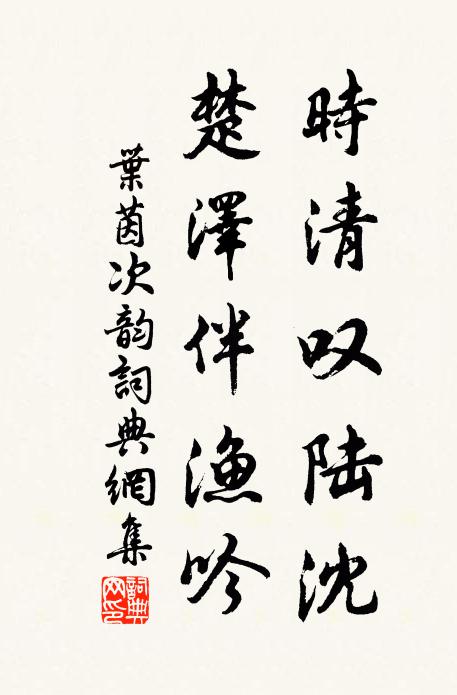 時清叹陆沈
楚澤伴漁吟
葉茵次韵詞典網集
詞典网印